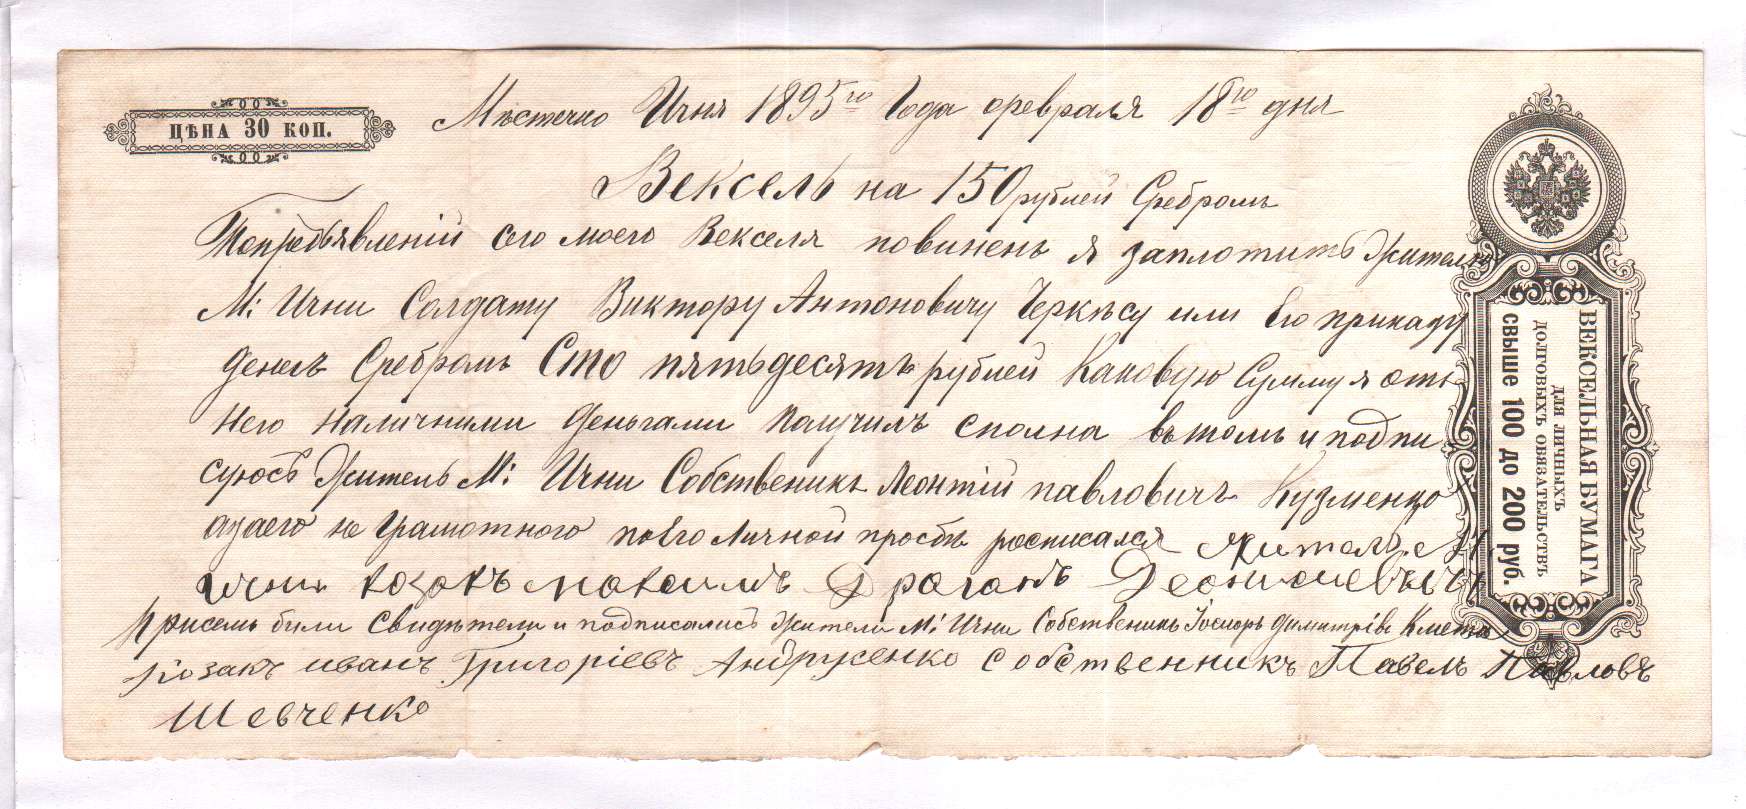 ЦѢНА 30 КОП.
Мѣстечко Ичня 1895го Года февраля 18го дня
Вексель на 150 рублей Сребромъ
Попредъявленій сего моего Векселя повиненъ я заплотить Жителю
М: Ични Солдату Виктору Антоновичу Черкѣсу или Его приказу
денегъ Сребромъ Сто пятьдесятъ рублей Каковую Сумму я отъ
Него Наличними Деньгами Получилъ сполна вътомъ и подпи
суюсь Житель М: Ични Собственикъ Леонтій павловичъ Кузменко
азаего не Грамотного поего Личной прозбѣ росписался жителъ М.
Ични козакъ максимъ Драганъ
Присемъ били Свидѣтели и подписались Жители М: Ични Собственикъ Димитріевъ
Козакъ иванъ Григоріевъ Андрусенко собственникъ Павелъ Павловъ
Шевченко
ВЕКСЕЛЬНАЯ БУМАГА
ДЛЯ ЛИЧНЫХЪ
ДОЛГОВЫХЪ ОБЯЗАТЕЛЬСТВЪ
СВЫШЕ 100 ДО 200 РУБ.